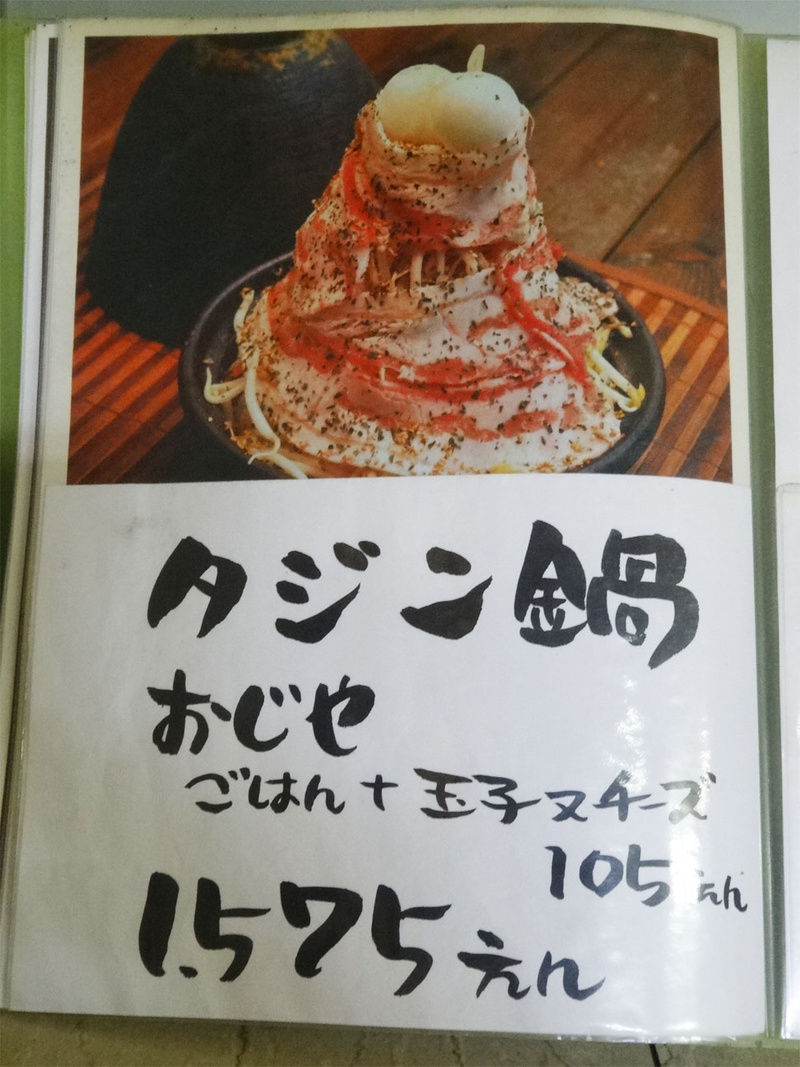 タジン鍋
おじや
ごはん+玉子ヌチーズ
105えん
1.575えん